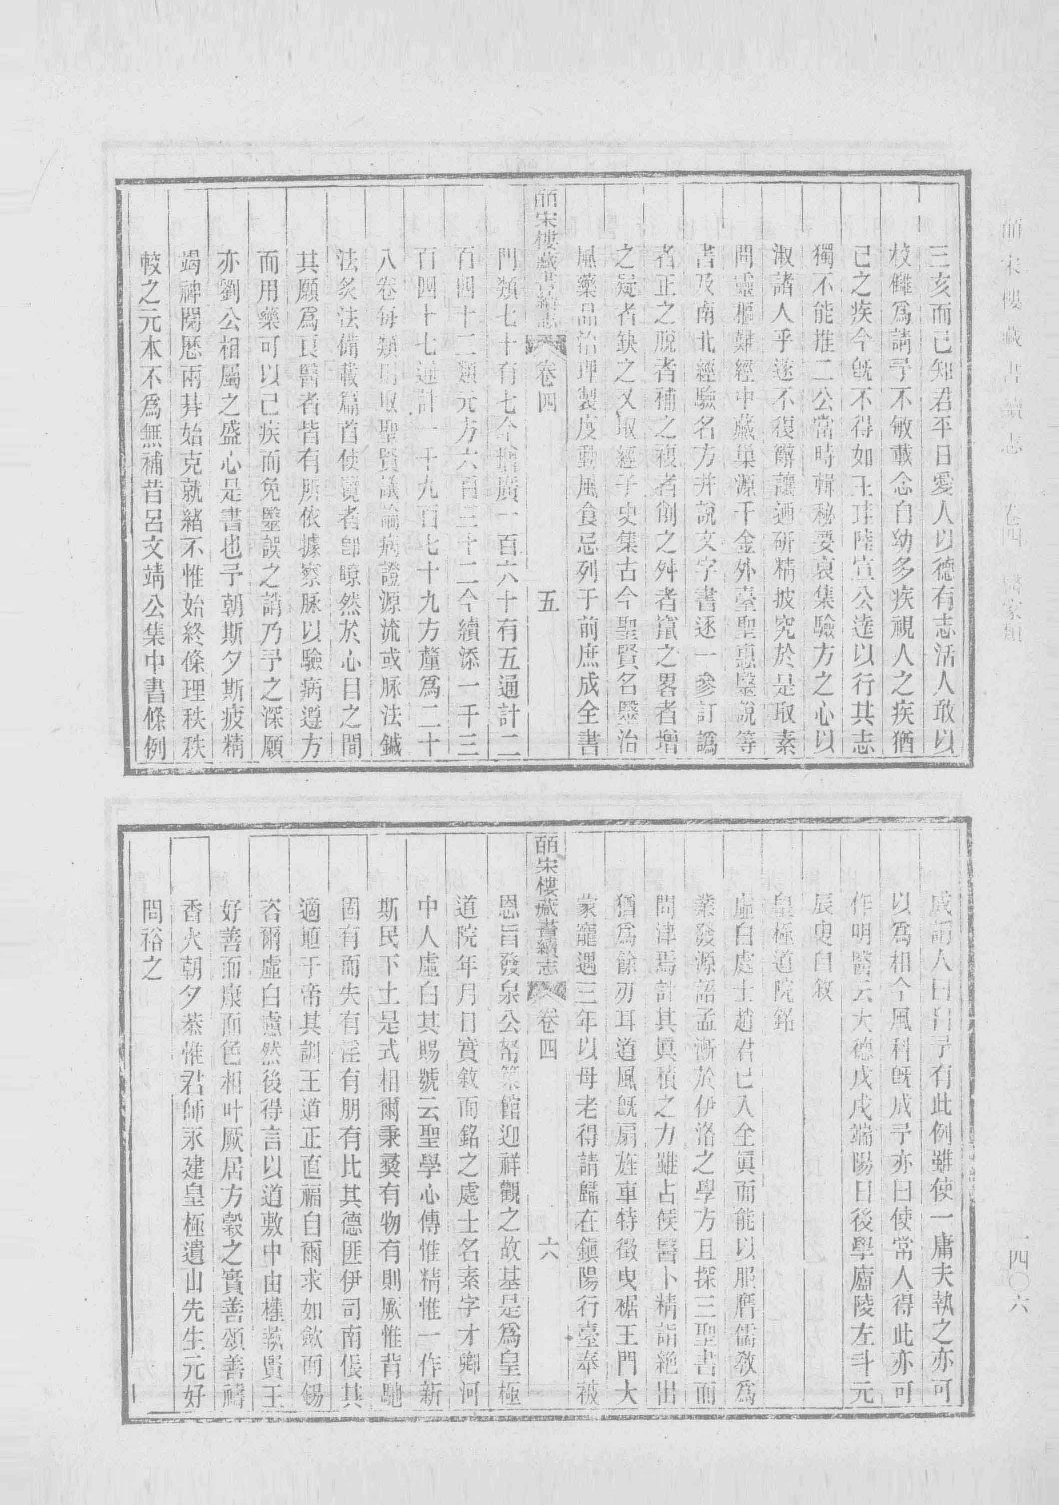 皕宋樓藏書續志 卷四 醫家類
一四〇六
三亥而已知君平日愛人以德有志活人敢以
校讎爲請予不敏載念自幼多疾視人之疾猶
己之疾今旣不得如王珪陸宣公達以行其志
獨不能推二公當時輯秘要裒集驗方之心以
淑諸人乎遂不復辭讓迺研精披究於是取素
問靈樞難經中藏巢源千金外臺聖惠醫說等
書及南北經驗名方幷說文字書逐一參訂譌
者正之脫者補之複者削之舛者竄之畧者增
之疑者缺之又取經子史集古今聖賢名醫治
風藥品治理製度動風食忌列于前庶成全書
皕宋樓藏書續志 卷四 五
門類七十有七今增廣一百六十有五通計二
百四十二類元方六百三十二今續添一千三
百四十七通計一千九百七十九方釐爲二十
八卷每類取聖賢議論病證源流或脉法鍼
法炙法備載篇首使覽者卽瞭然於心目之間
其願爲良醫者皆有所依據察脉以驗病遵方
而用藥可以己疾而免醫誤之誚乃予之深願
亦劉公相屬之盛心是書也予朝斯夕斯疲精
竭神閱歷兩朞始克就緖不惟始終條理秩秩
較之元本不爲無補昔呂文靖公集中書條例
成謂人曰自予有此例雖使一庸夫執之亦可
以爲相今風科旣成予亦曰使常人得此亦可
作明醫云大德戊戌端陽日後學廬陵左斗元
辰叟自敘
皇極道院銘
虛白處士趙君已入全眞而能以服膺儒敎爲
業發源語孟漸於伊洛之學方且探三聖書而
問津焉計其眞積之力雖占候醫卜精詣絶出
猶爲餘刃耳道風旣扇旌車特徵曳裾王門大
蒙寵遇三年以母老得請歸在鎭陽行臺奉被
皕宋樓藏書續志 卷四 六
恩旨發泉公帑築館迎祥觀之故基是爲皇極
道院年月日實敘而銘之處士名素字才卿河
中人虛白其賜號云聖學心傳惟精惟一作新
斯民下土是式相爾秉彝有物有則厥惟背馳
固有而失有淫有朋有比其德匪伊司南倀其
適迪于帝其訓王道正直福自爾求如斂而錫
咨爾虛白盧然後得言以道敷中由權執貴王
好善而康而色相叶厥居方穀之實善頌善禱
香火朝夕恭惟君師永建皇極遺山先生元好
問裕之